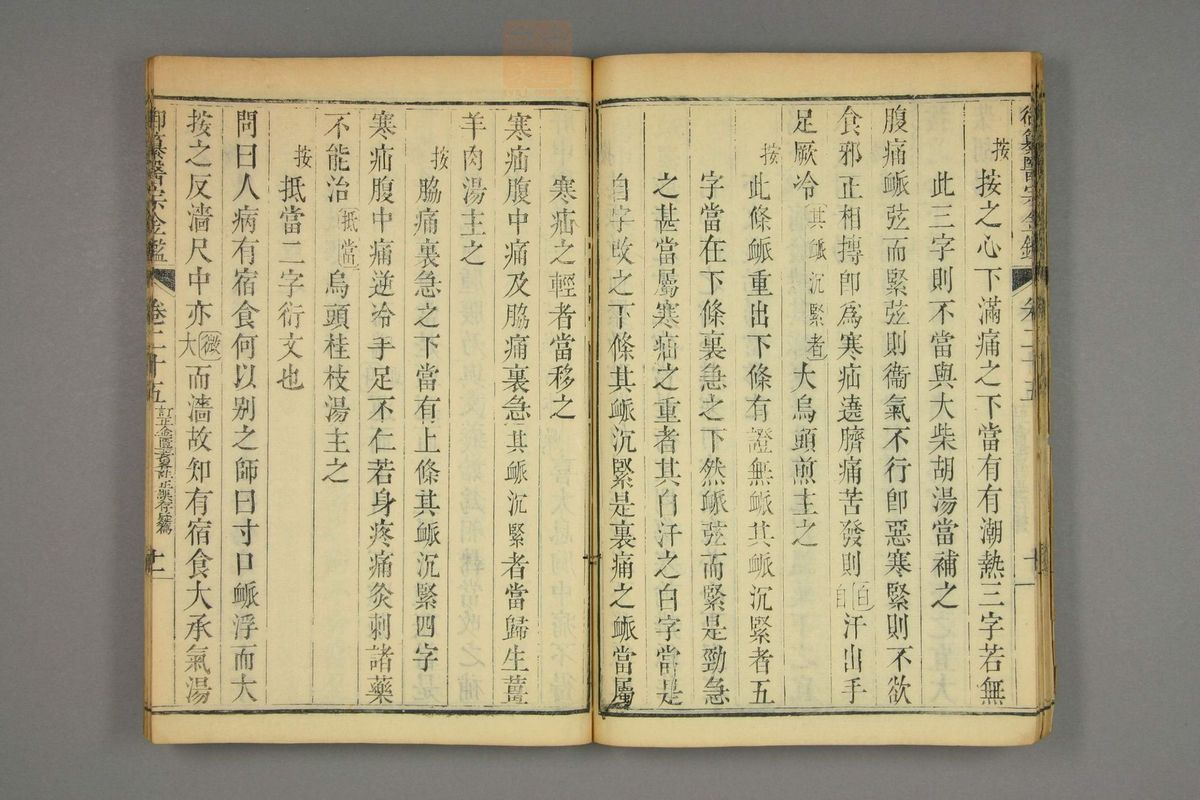 御纂醫宗金鑑
卷二十五
十一
按 按之心下滿痛之下當有有潮熱三字若無
此三字則不當與大柴胡湯當補之
腹痛衇弦而緊弦則衞氣不行卽惡寒緊則不欲
食邪正相搏卽爲寒疝遶臍痛苦發則白自汗出手
足厥冷其衇沉緊者大烏頭煎主之
按 此條衇重出下條有證無衇其衇沉緊者五
字當在下條裏急之下然衇弦而緊是勁急
之甚當屬寒疝之重者其白汗之白字當是
自字改之下條其衇沉緊是裏痛之衇當屬
寒疝之輕者當移之
寒疝腹中痛及脇痛裏急其衇沉緊者當歸生薑
羊肉湯主之
按 脇痛裏急之下當有上條其衇沉緊四字
寒疝腹中痛逆冷手足不仁若身疼痛灸刺諸藥
不能治抵當烏頭桂枝湯主之
按 抵當二字衍文也
問曰人病有宿食何以别之師曰寸口衇浮而大
按之反濇尺中亦微大而濇故知有宿食大承氣湯
御纂醫宗金鑑
卷二十五
訂正金匱要畧註正誤存疑篇